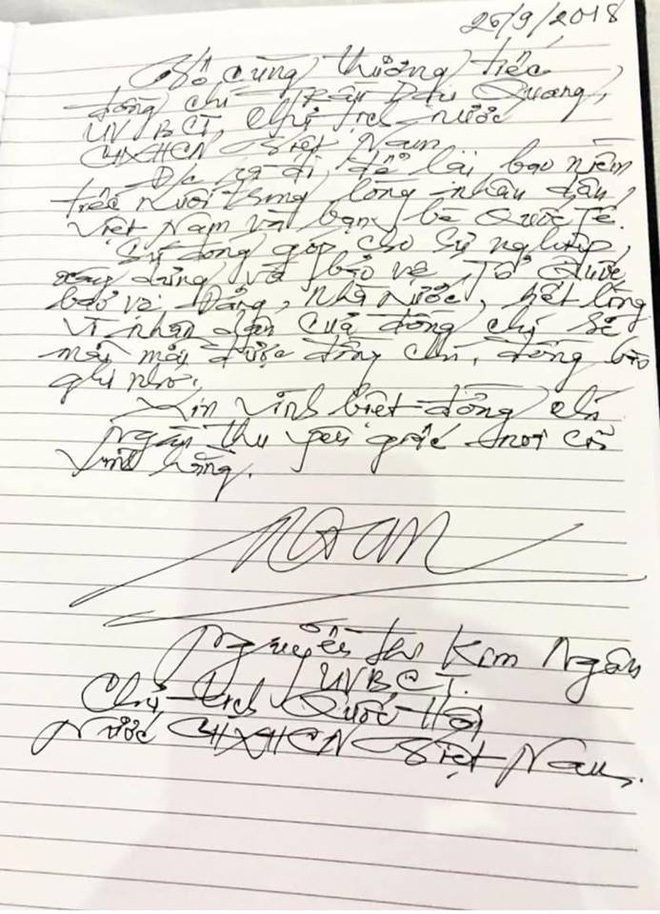 26/9/2018
Vô cùng thương tiếc
đồng chí Trần Đại Quang,
UVBCT, Chủ tịch nước
CHXHCN Việt Nam
Đ/c ra đi, để lại bao niềm
tiếc nuối trong lòng nhân dân,
Việt Nam và bạn bè Quốc Tế.
Sự đóng góp cho sự nghiệp,
xây dựng và bảo vệ Tổ Quốc
bảo vệ Đảng, Nhà nước, hết lòng
vì nhân dân của đồng chí sẽ
mãi mãi được đồng chí, đồng bào
ghi nhớ.
Xin vĩnh biệt đồng chí
Ngàn thu yên giấc nơi cõi
vĩnh hằng.
Ngân
Nguyễn Thị Kim Ngân
UVBCT.
Chủ tịch Quốc Hội
Nước CHXHCN Việt Nam.